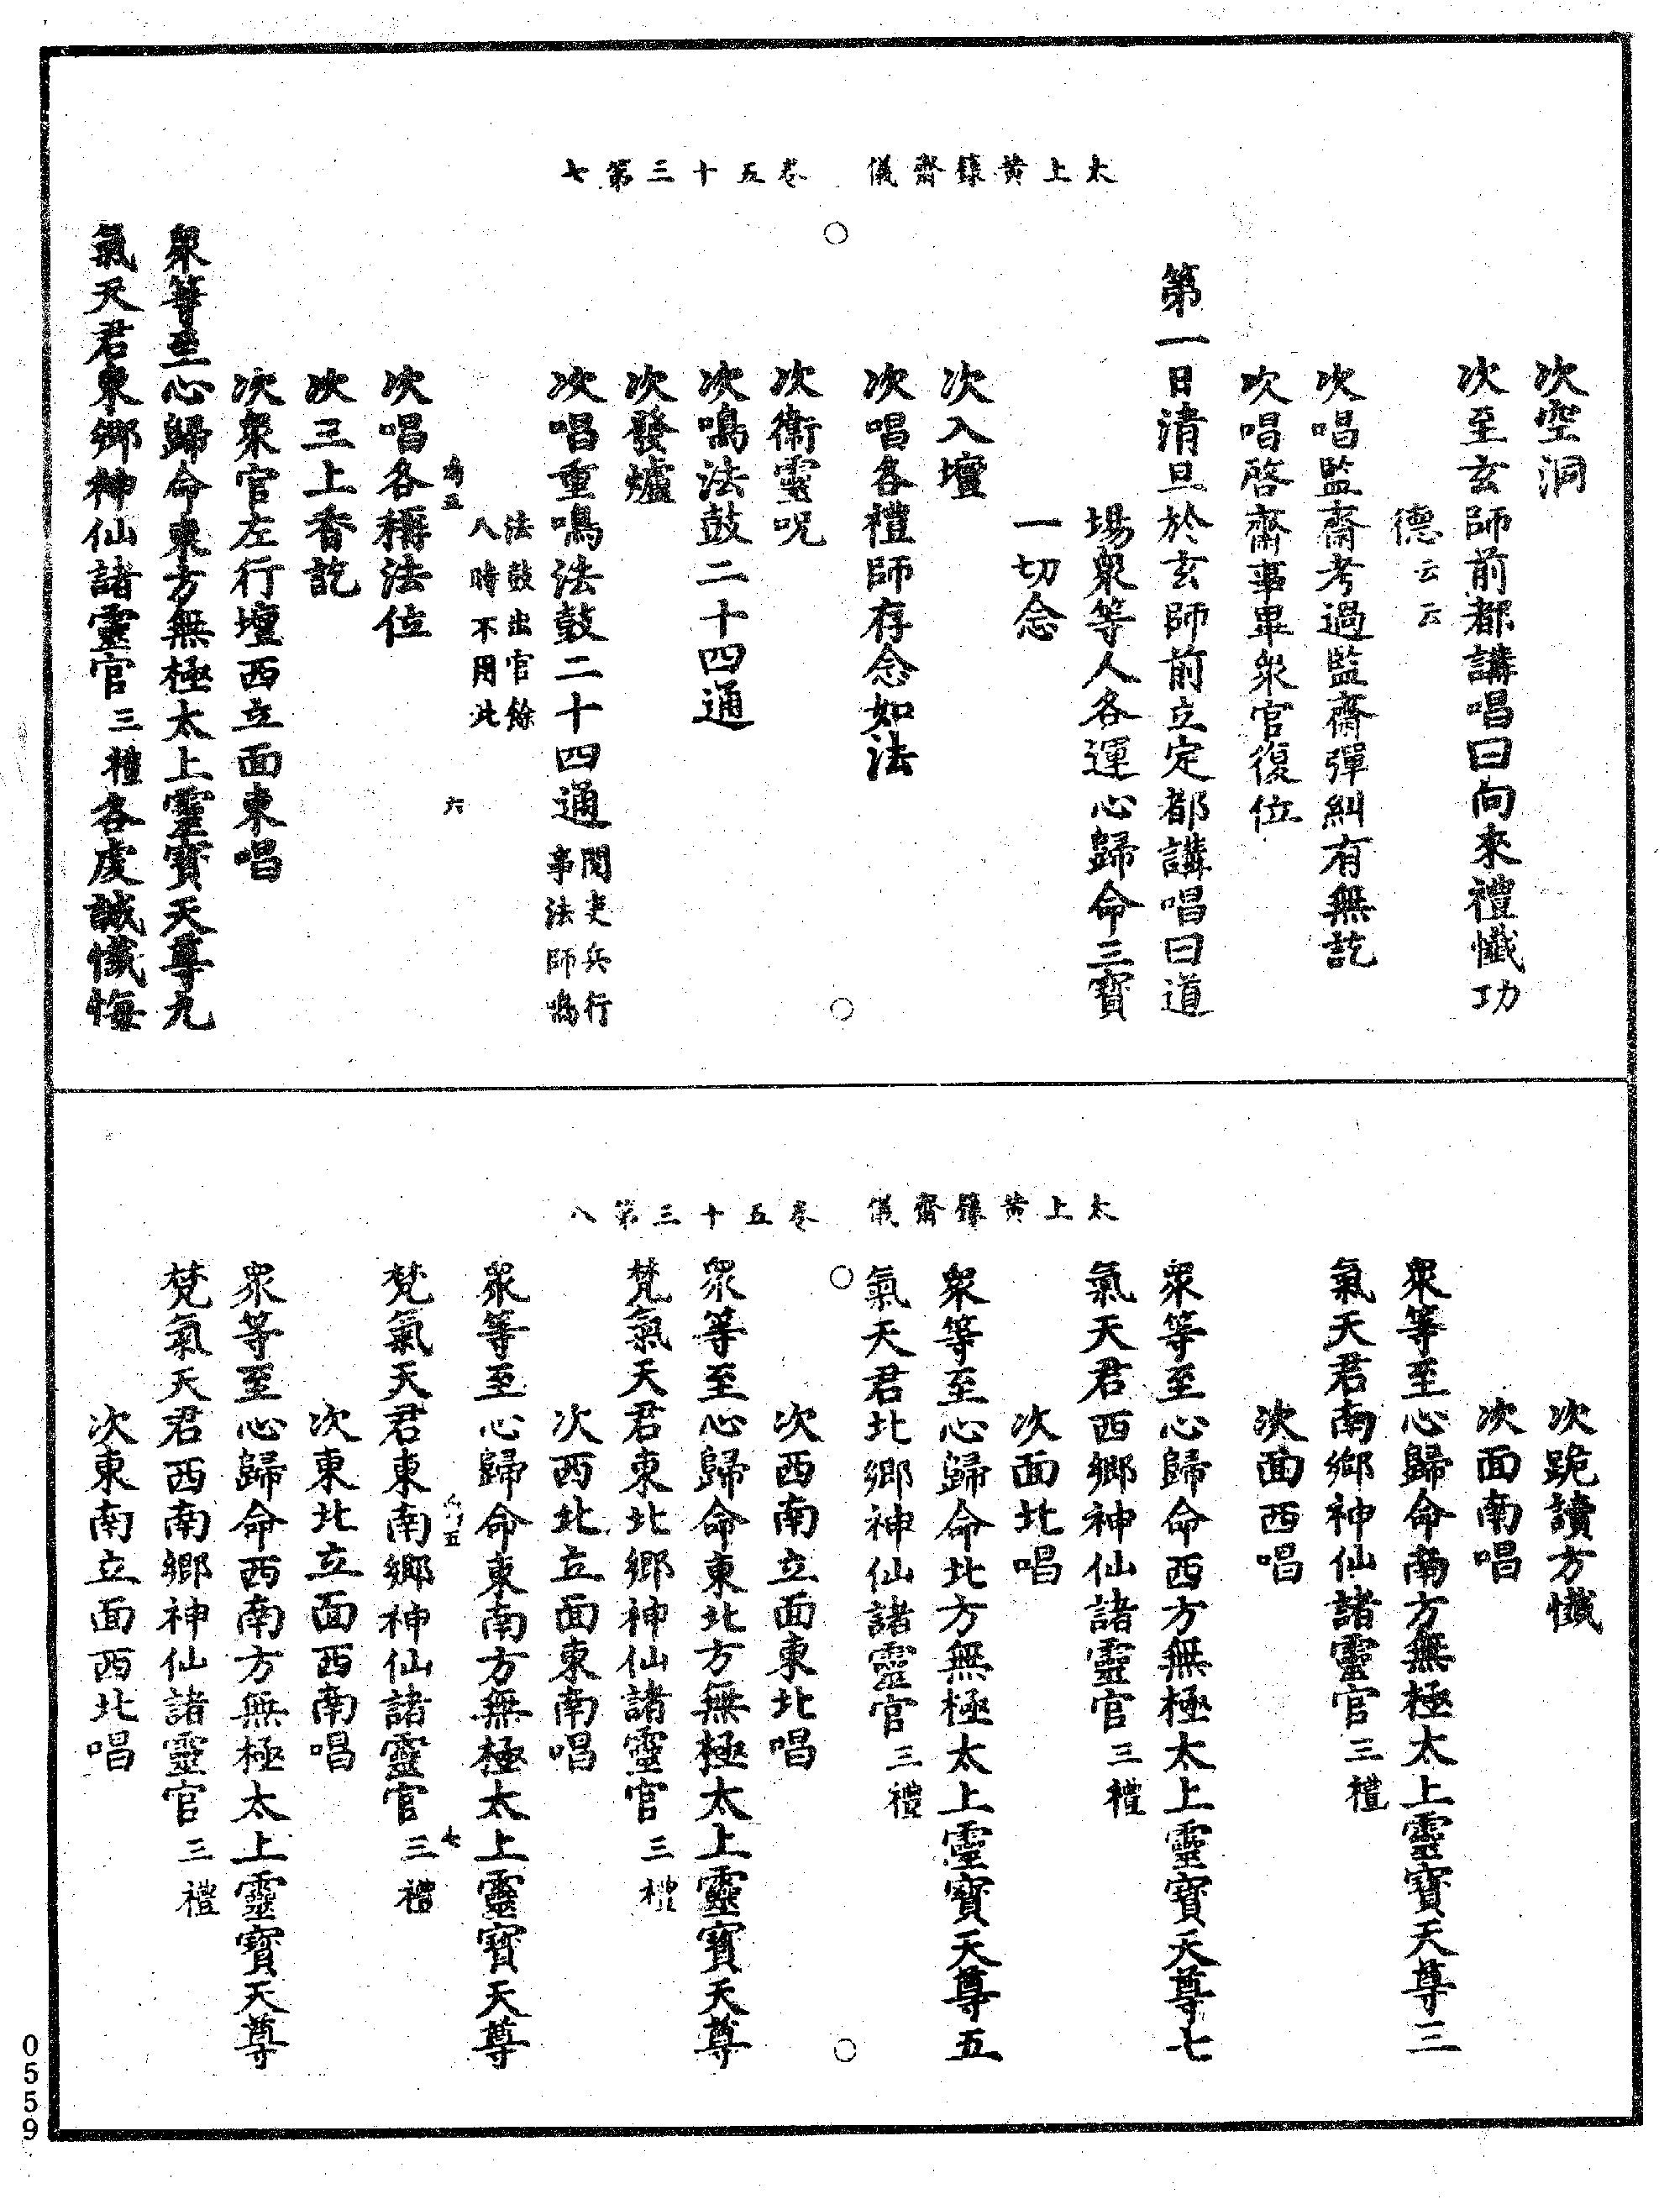 太上黃籙齋儀　卷五十三第七
次空洞
次至玄師前都講唱曰向來禮懺功
德云云
次唱監齋考過監齋彈糾有無訖
次唱啓齋事畢衆官復位
第一日清旦於玄師前立定都講唱曰道
場衆等人各運心歸命三寶
一切念
次入壇
次唱各禮師存念如法
次衛靈呪
次鳴法鼓二十四通
次發爐
次唱重鳴法鼓二十四通閱吏兵行事法師鳴
法鼓出官餘八時不用此
六
次唱各稱法位
次三上香訖
次衆官左行壇西立面東唱
衆等至心歸命東方無極太上靈寶天尊九
氣天君東鄉神仙諸靈官三禮各虔誠懺悔
太上黃籙齋儀　卷五十三第八
次跪讀方懺
次面南唱
衆等至心歸命南方無極太上靈寶天尊三
氣天君南鄉神仙諸靈官三禮
次面西唱
衆等至心歸命西方無極太上靈寶天尊七
氣天君西鄉神仙諸靈官三禮
次面北唱
衆等至心歸命北方無極太上靈寶天尊五
氣天君北鄉神仙諸靈官三禮
次西南立面東北唱
衆等至心歸命東北方無極太上靈寶天尊
梵氣天君東北鄉神仙諸靈官三禮
次西北立面東南唱
衆等至心歸命東南方無極太上靈寶天尊
七
梵氣天君東南鄉神仙諸靈官三禮
次東北立面西南唱
衆等至心歸命西南方無極太上靈寶天尊
梵氣天君西南鄉神仙諸靈官三禮
次東南立面西北唱
0559